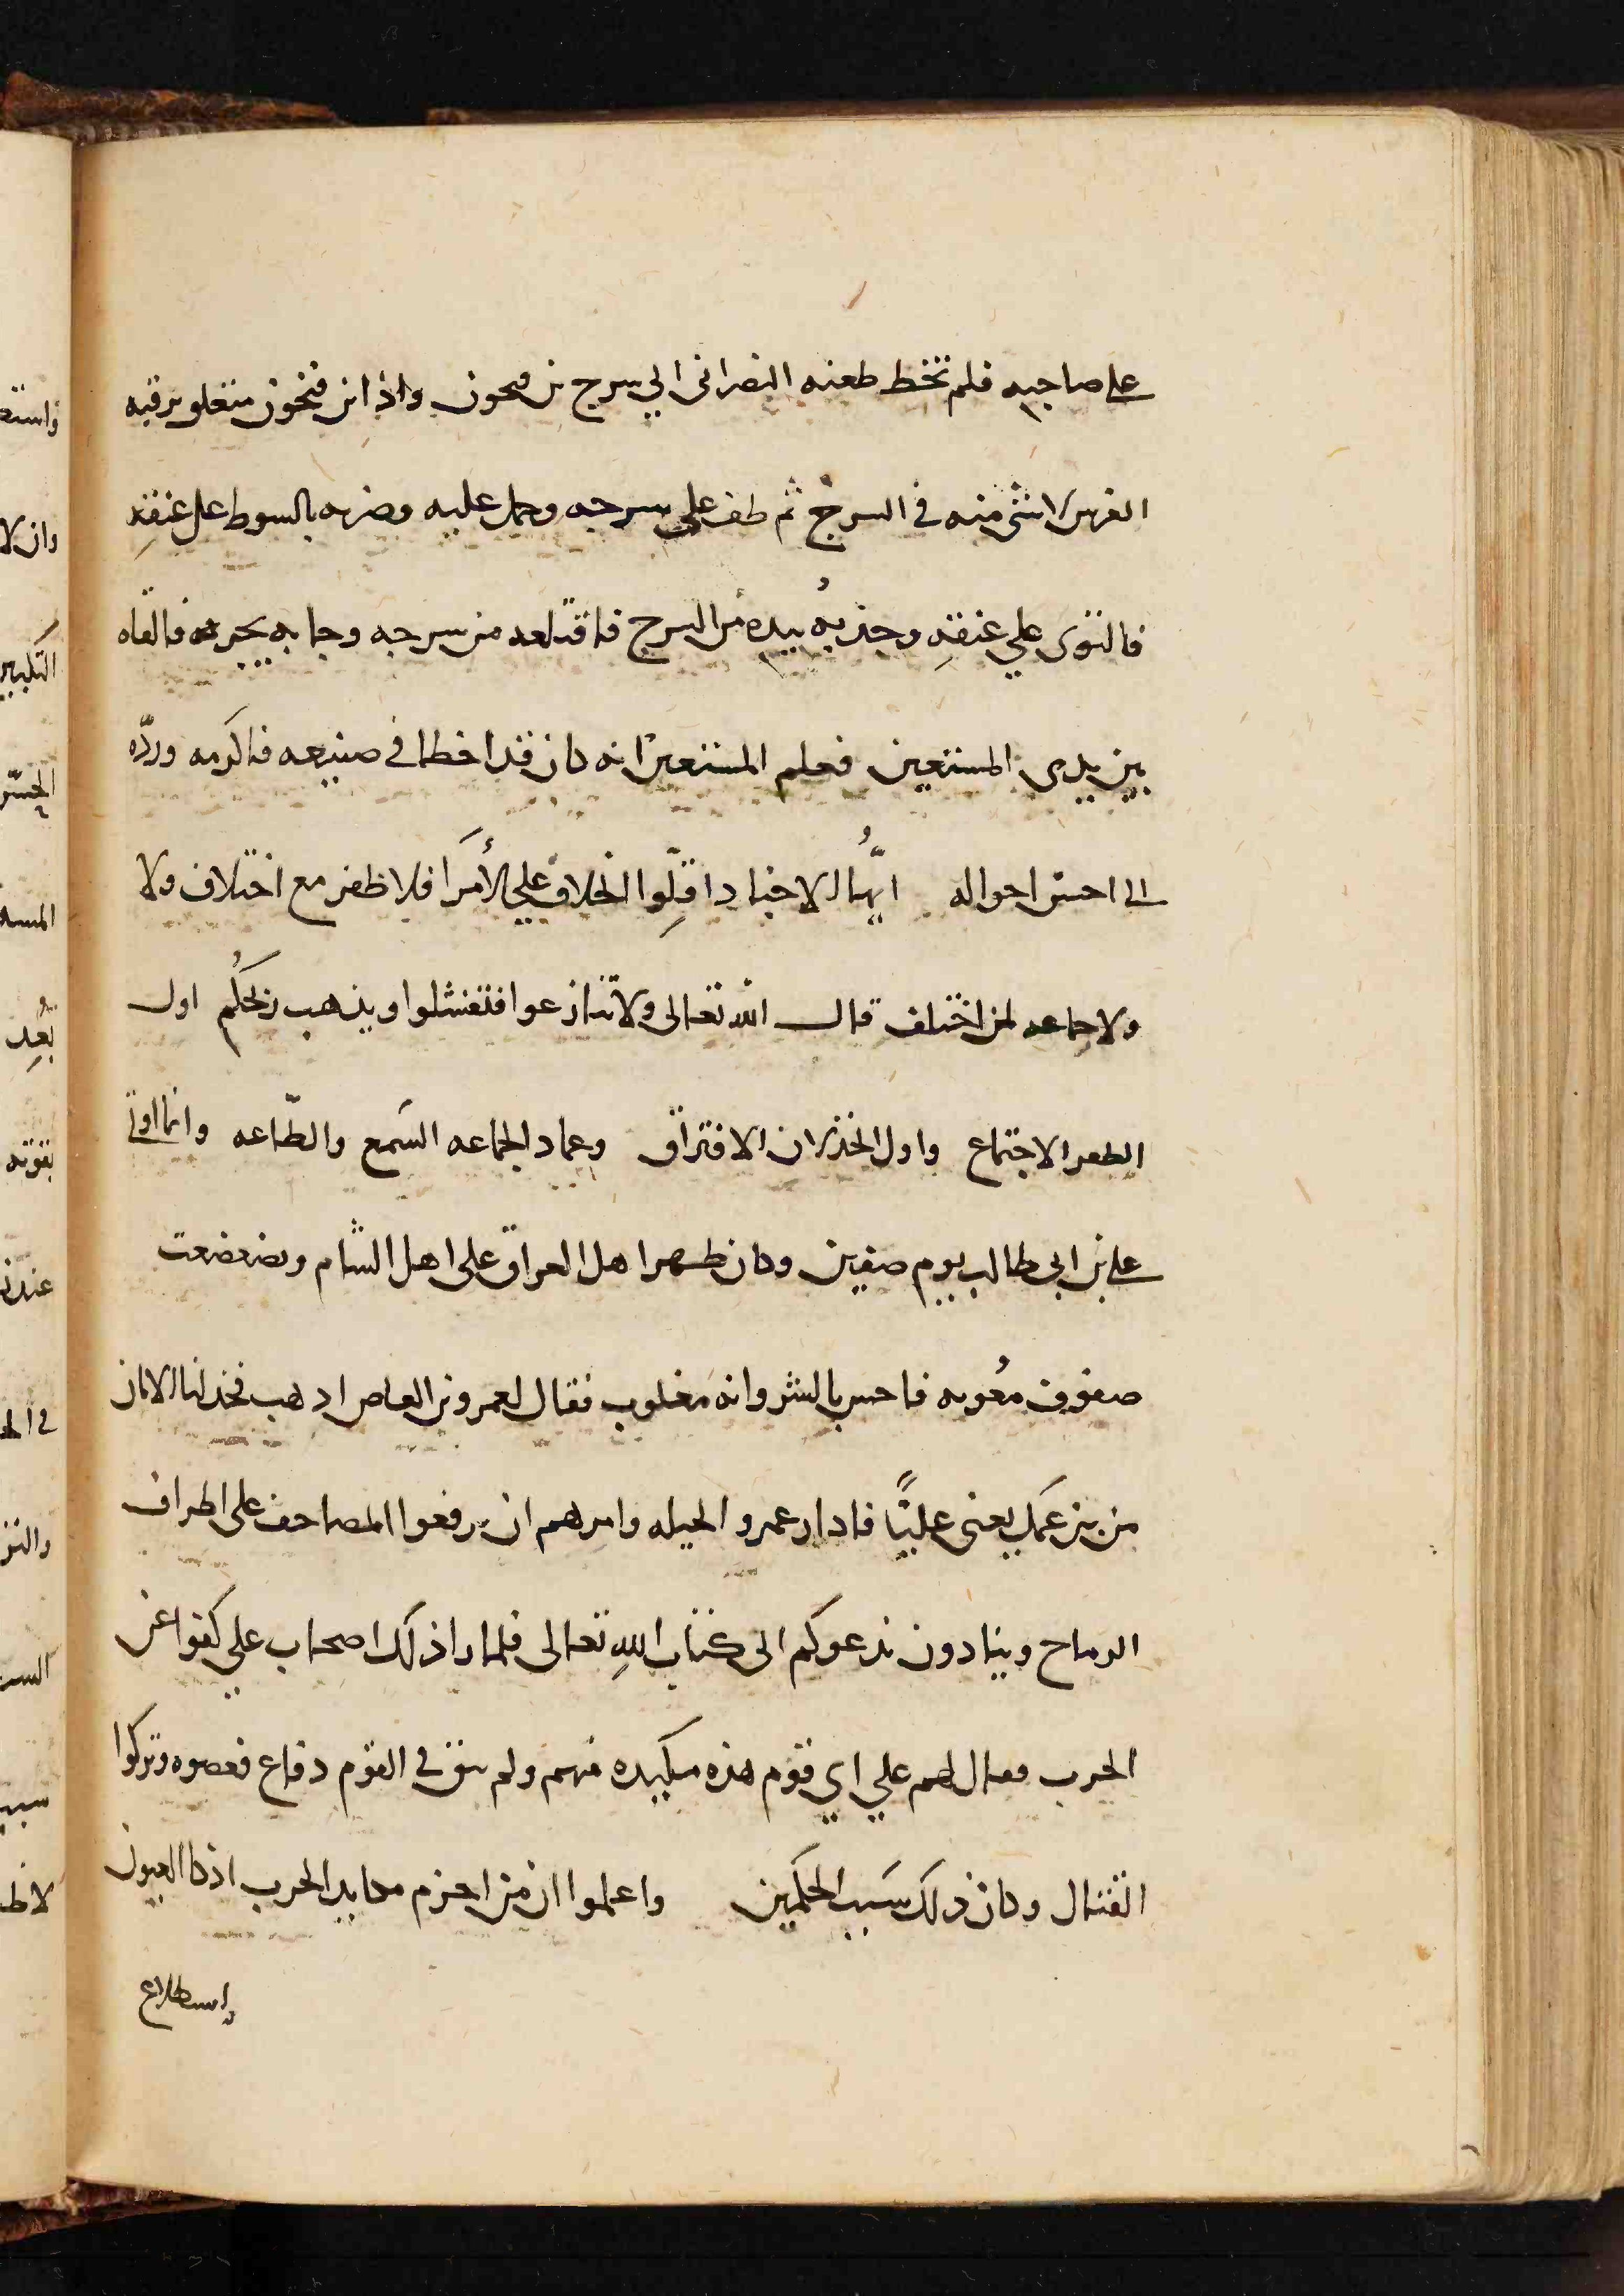 على صاحبه فلم تخط طعنه النصرانى الي سرج بن فتحون واذا بن فتحون متعلق برقبه
الفرس لا شى منه في السرج ثم طفر على سرجه وحمل عليه وضربه بالسوط على عنقهِ
فالتوى علي عنقهِ وجذبهُ بيده من السرج فاقتلعه من سرجه وجا به يجره فالقاه
بين يدى المستعين فعلم المستعين انه كان قد اخطا في صنيعه فاكرمه وردّه
الى احسن احواله ايّهُا الاجناد اقلِّوا الخلاف علي الأمرَا فلا ظفر مع اختلاف ولا
ولا جماعه لمن اختلف قال الله تعالى ولا تنازعوا فتفشلوا ويذهب ريحكُم اول
الظفر الاجتماع واول الخذلان الافتراق وعماد الجماعه السَمع والطّاعه وانما اوتي
على بن ابي طالب يوم صفين وكان ظهر اهل العراق على اهل الشام وتضعضعت
صفوف مُعويه فاحس بالشر وانه مغلوب فقال لعمرو بن العاص اذهب فخذ لنا الامان
من بن عَمك يعني عليًّا فادار عمرو الحيله وامرهم ان يرفعوا المصاحف على اطراف
الرماح وينادون ندعوكم الى كتاب اللهِ تعالى فلما را ذلك اصحاب علي كفوا عن
الحرب فقال لهم علي اي قوم هذه مكيده منهم ولم يبق في القوم دفاع فعصوه وتركوا
القتال وكان ذلك سَبب الحكمين واعلموا ان من احزم مكايد الحرب اذكا العيون
إستطلاع